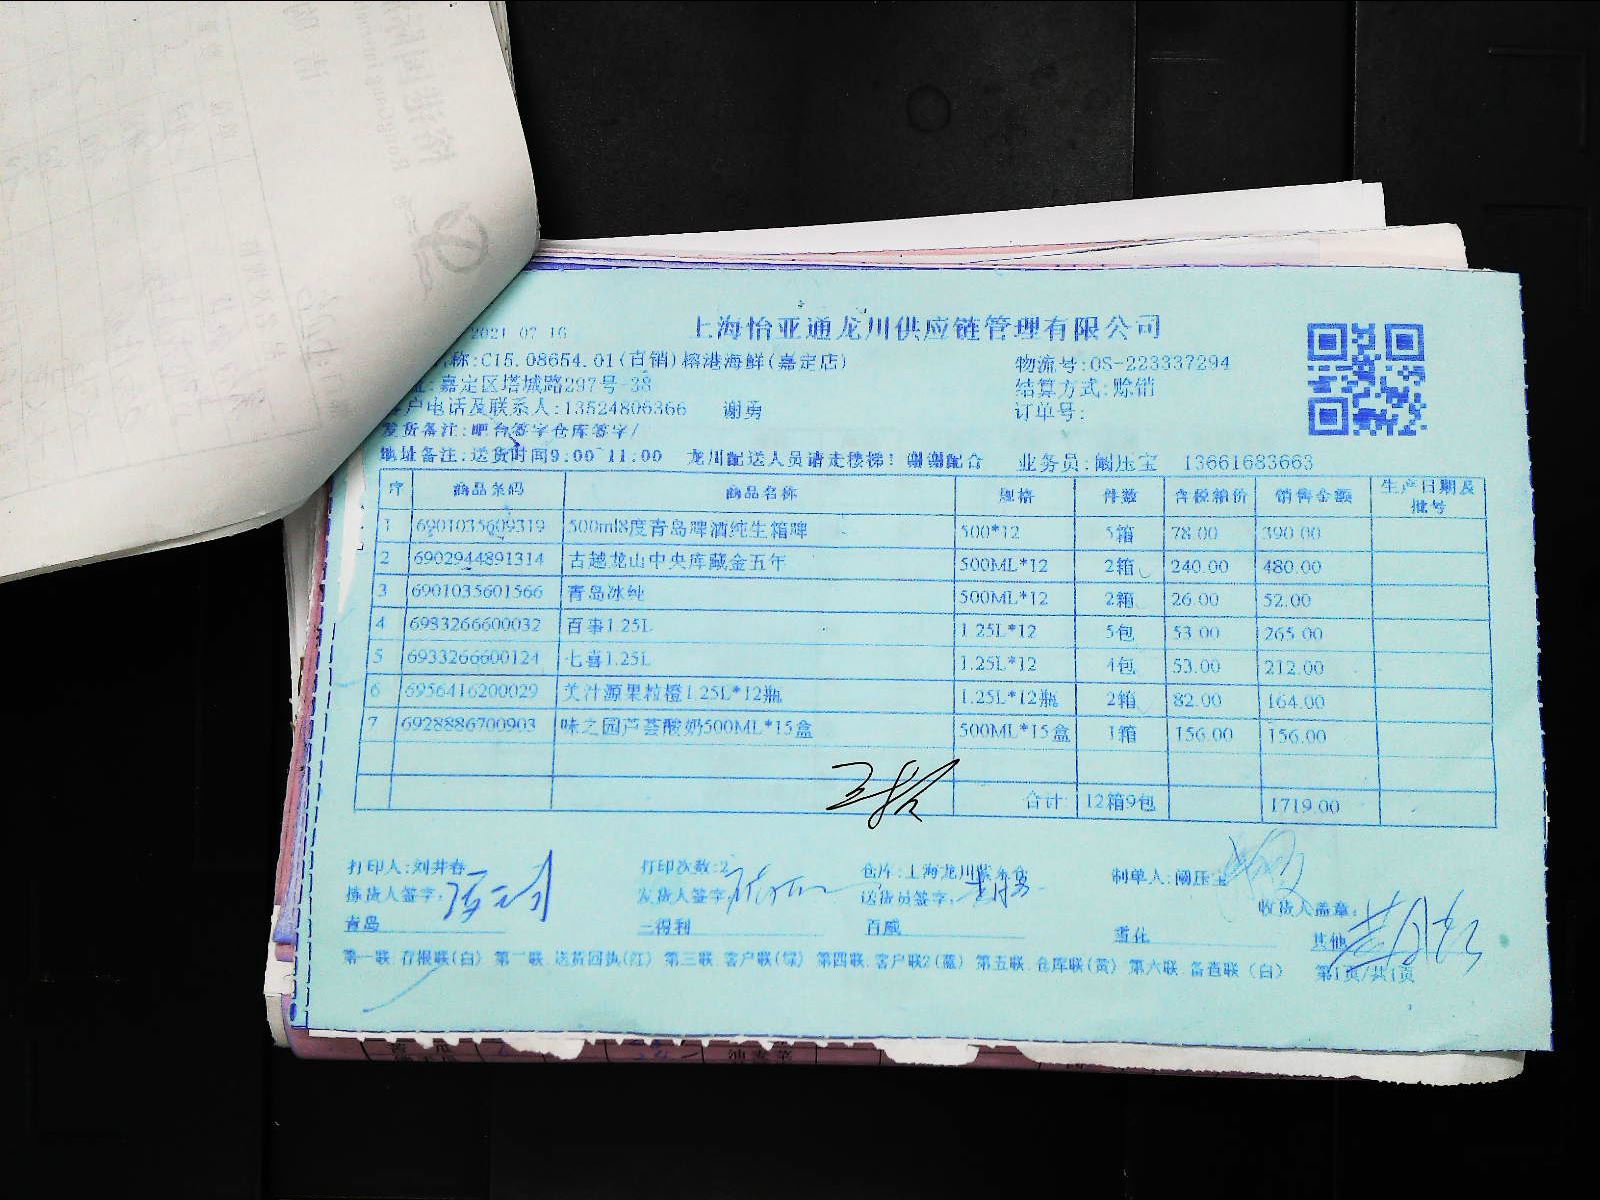 2021 07 16
上海怡亚通龙川供应链管理有限公司
称:C15.08654.01(百销)榕港海鲜(嘉定店) 物流号:OS-223337294
址:嘉定区塔城路297号-38 结算方式:赊销
客户电话及联系人:13524806366 谢勇 订单号:
发货备注:吧台签字仓库签字/
地址备注:送货时间9:00~11:00 龙川配送人员请走楼梯!谢谢配合 业务员:阚压宝 13661683663
序 商品条码 商品名称 规格 件数 含税箱价 销售金额 生产日期及批号
1 6901035609319 500ml8度青岛啤酒纯生箱啤 500*12 5箱 78.00 390.00
2 6902944891314 古越龙山中央库藏金五年 500ML*12 2箱 240.00 480.00
3 6901035601566 青岛冰纯 500ML*12 2箱 26.00 52.00
4 6933266600032 百事1.25L 1.25L*12 5包 53.00 265.00
5 6933266600124 七喜1.25L 1.25L*12 4包 53.00 212.00
6 6956416200029 美汁源果粒橙1.25L*12瓶 1.25L*12瓶 2箱 82.00 164.00
7 6928886700903 味之园芦荟酸奶500ML*15盒 500ML*15盒 1箱 156.00 156.00
合计: 12箱9包 1719.00
打印人:刘井春 打印次数:2 仓库:上海龙川紫东仓 制单人:阚压宝
拣货人签字: 发货人签字: 送货员签字: 收货人盖章:
青岛 三得利 百威 雪花 其他
第一联:存根联(白) 第二联:送货回执(红) 第三联:客户联(绿) 第四联:客户联2(蓝) 第五联:仓库联(黄) 第六联:备查联(白) 第1页/共1页